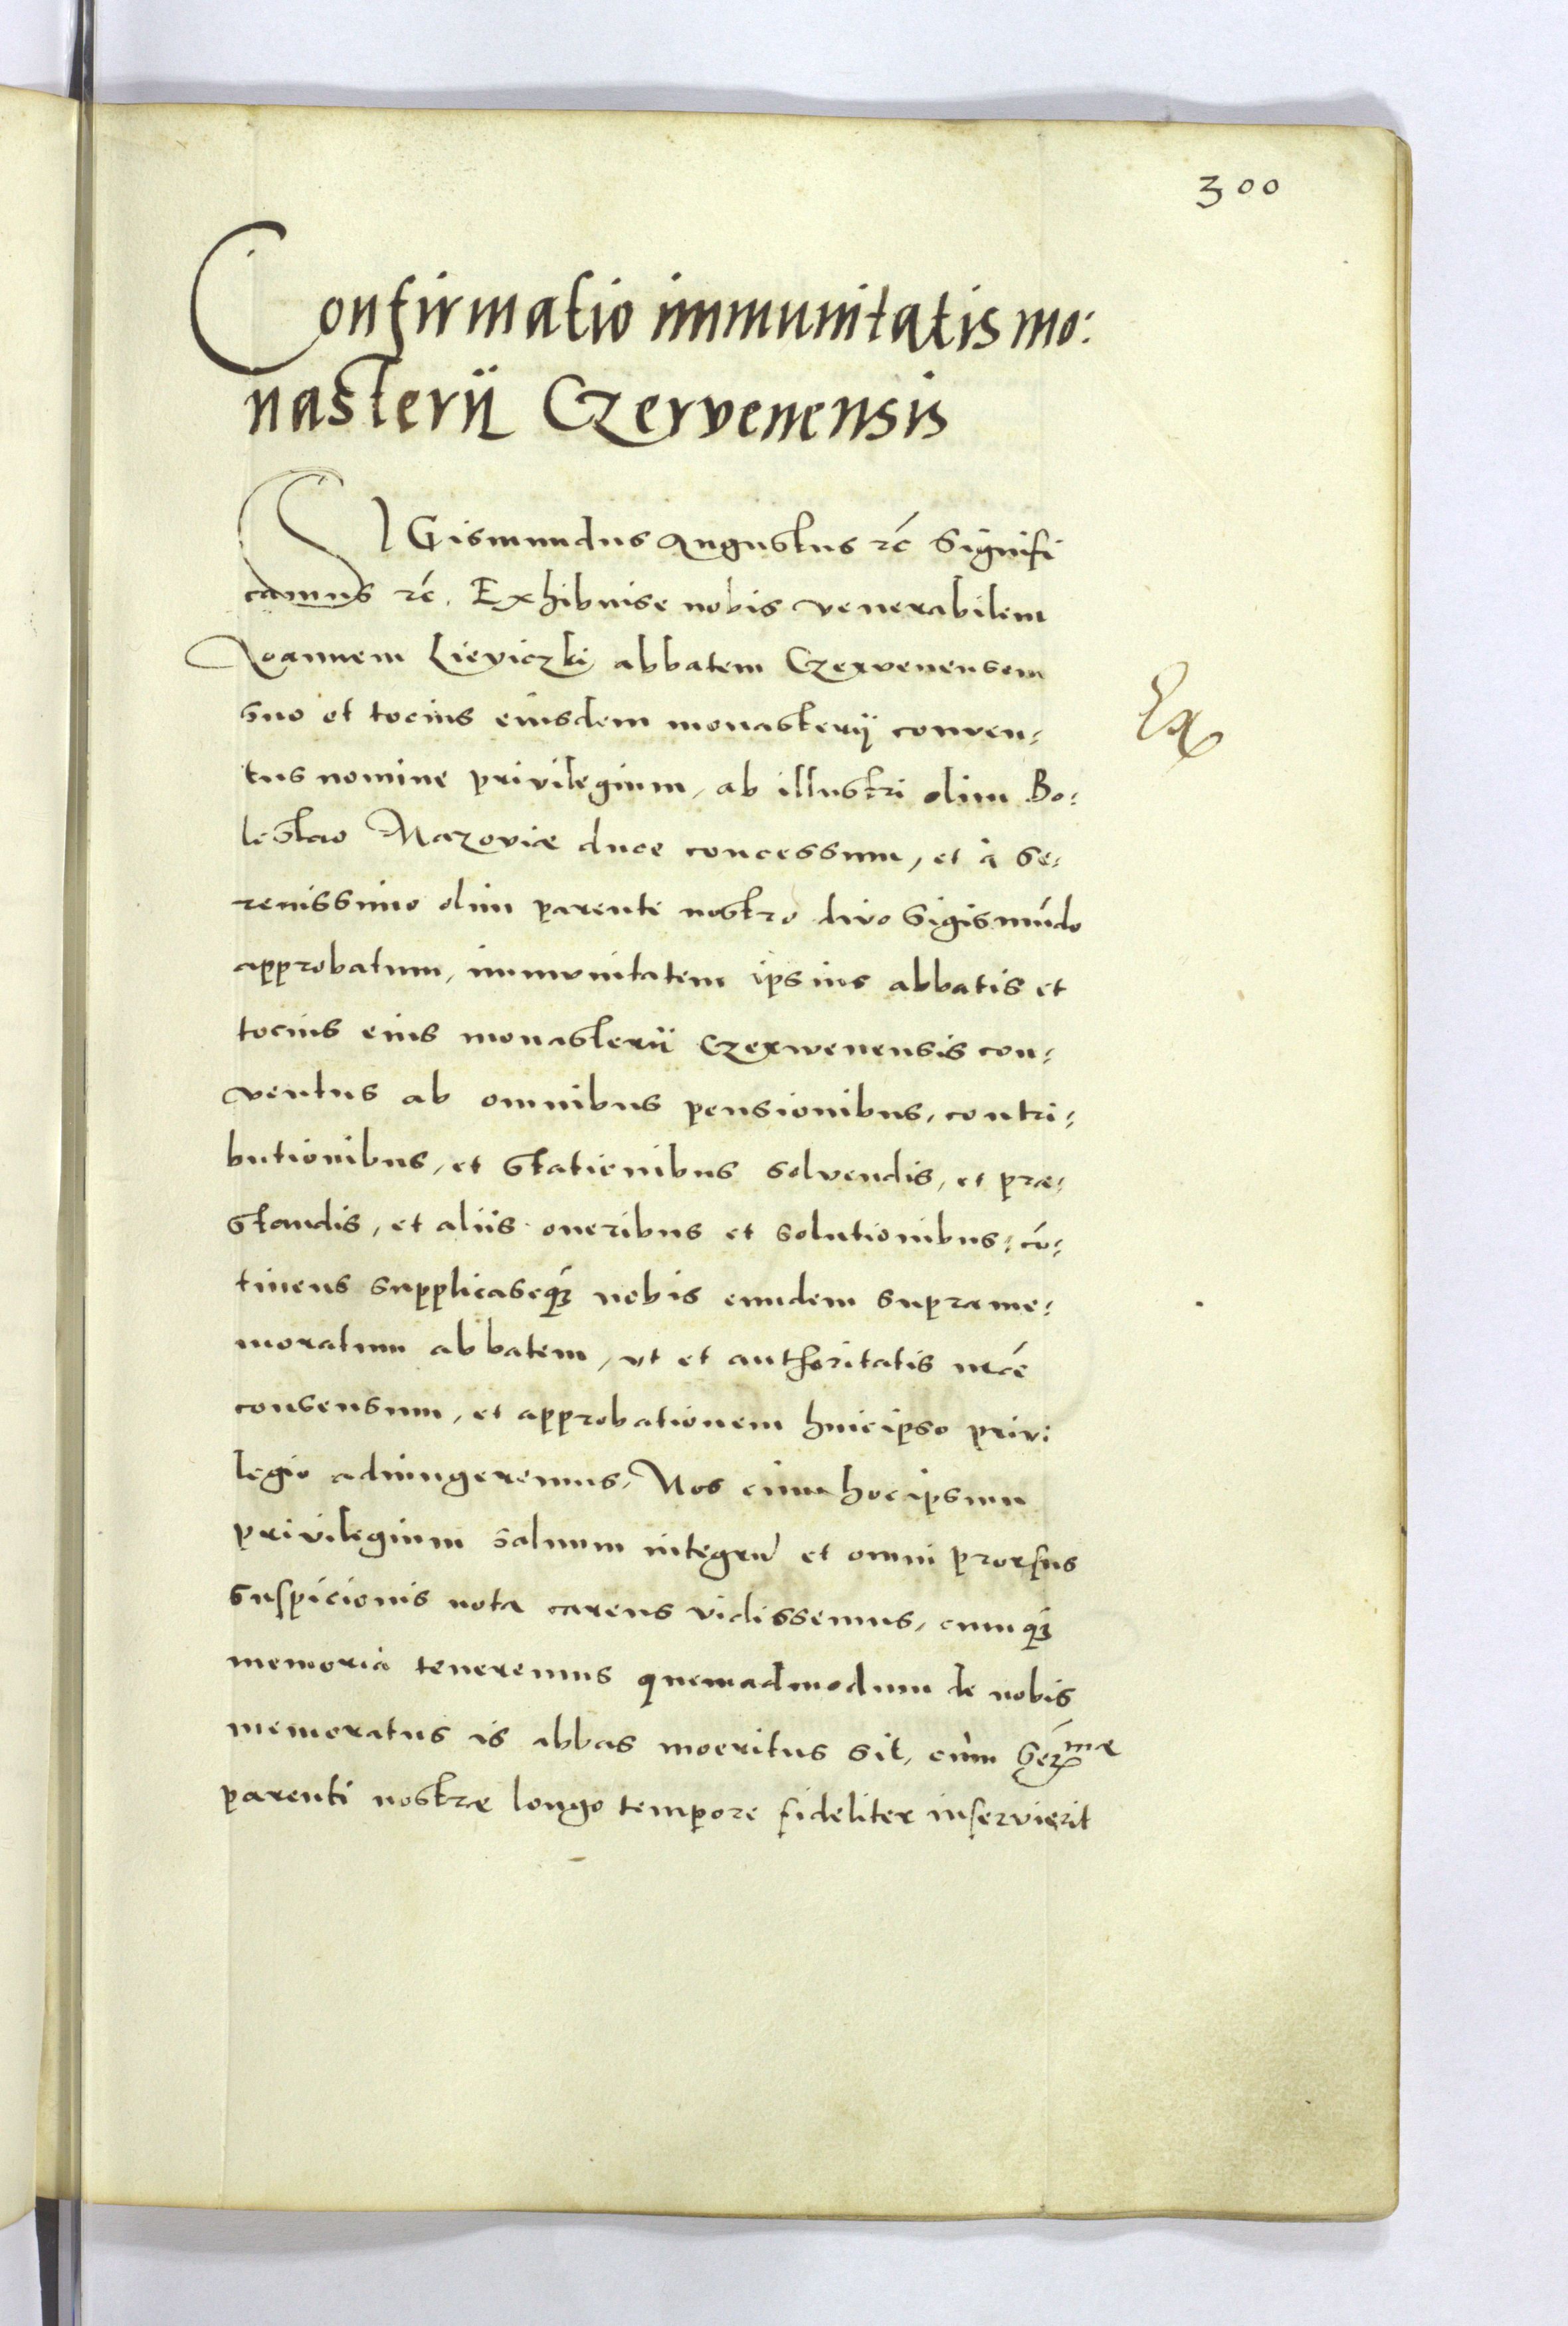 300
Confirmatio immunitatis mo:
nasterii Czervenensis
SIGismundus Augustus rc̃ Signifi
camus rc̃. Exhibuise nobis venerabilem
Joannem Lieviczki abbatem Czervenensem
suo et tocius eiusdem monasterij conven:
tus nomine privilegium, ab illustri olim Bo:
leslao Mazoviæ duce concessum, et à Se:
renissimo olim parente nostro divo Sigismũdo
approbatum, immunitatem ipsius abbatis et
tocius eius monasterii Czerwenensis con:
ventus ab omnibus pensionibus, contri:
butionibus, et stationibus solvendis, et præ:
standis, et aliis oneribus et solutionibus: cõ:
tinens supplicaseq; nobis eundem suprame:
moratum abbatem, ut et authoritatis nrẽ
consensum, et approbationem huic ipso privi
legio adiungeremus, Nos cum hoc ipsum
privilegium saluum integrũ et omni prorsus
suspicionis nota carens vidissemus, cumq;
memoria teneremus quemadmodum de nobis
memoratus is abbas moeritus sit, cùm Ser.mæ
parenti nostræ longo tempore fideliter inservierit